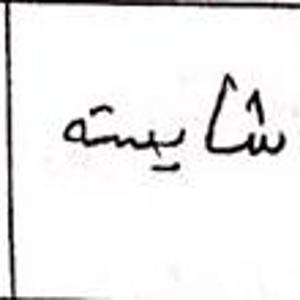 شایسته